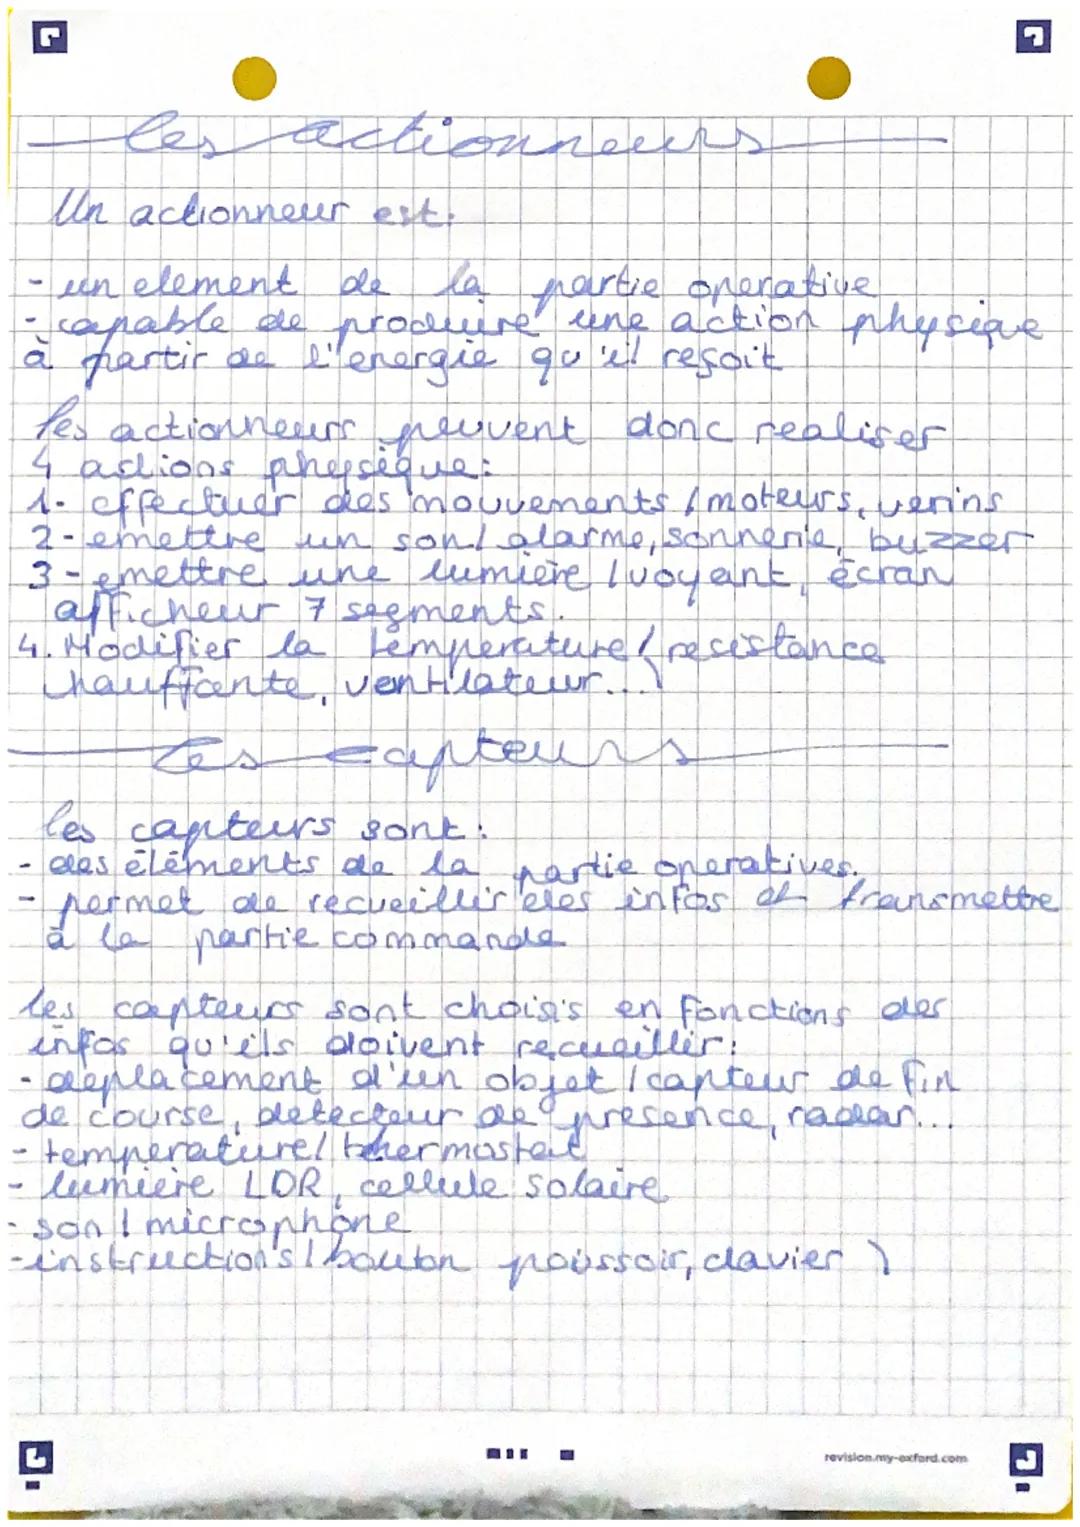 les actionneurs
Un actionneur est:
- un element de la partie operative
- capable de produire une action physique
à partir de l'energie qu'il resoit
les actionneurs peuvent donc realiser
4 actions physique:
1- effectuer des mouvements / moteurs, verins
2- emettre un son / alarme, sonnerie, buzzer
3- emettre une lumière / voyant, écran
afficheur 7 segments.
4. Modifier la temperature / resistance
chauffante, ventilateur...)
les capteurs
les capteurs sont:
- des éléments de la partie operatives.
- permet de recueillir des infos et transmettre
à la partie commande
les capteurs sont choisis en fonctions des
infos qu'ils doivent recueillir:
- deplacement d'un objet / capteur de fin
de course, detecteur de presence, radar...
- temperature / thermostat
- lumière LDR, cellule solaire
- son / microphone
- instructions / bouton poussoir, clavier )
revision.my-oxford.com